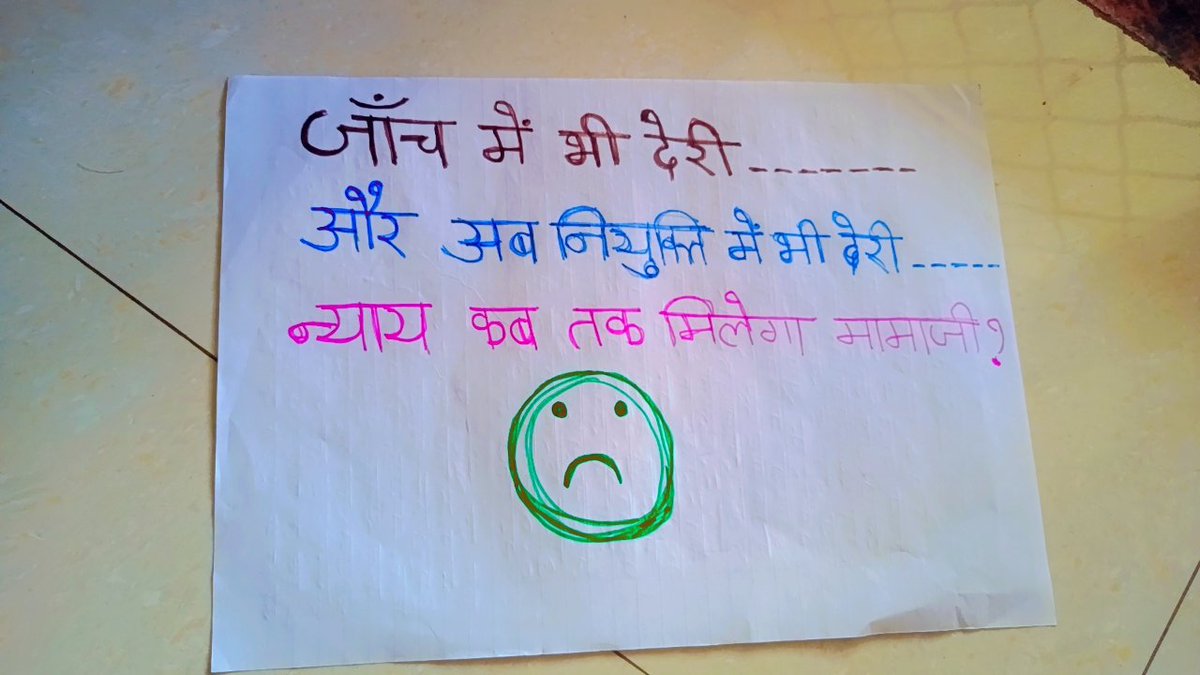 जाँच में भी देरी _ _ _ _ _ _ _
और अब नियुक्ति में भी देरी _ _ _ _ _
न्याय कब तक मिलेगा मामाजी?